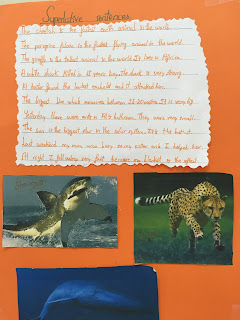 Superlative sentences
The cheetah is the fastest earth animal in the world.
The peregrine falcon is the fastest flying animal in the world.
The giraffe is the tallest animal in the world. It live in Africa.
A white shark killed a 15 years boy. The shark is very strong.
A hunter found the and it attacked him.
The biggest blue whale measures between 22-30 metres. It is very big.
Yesterday there were ants in bathroom. They were very small.
The sun is the biggest star in the solar system. It is the hottest.
Last weekend my mum was busy and I helped her.
At night I fall asleep very fast because my blanket is the softest.